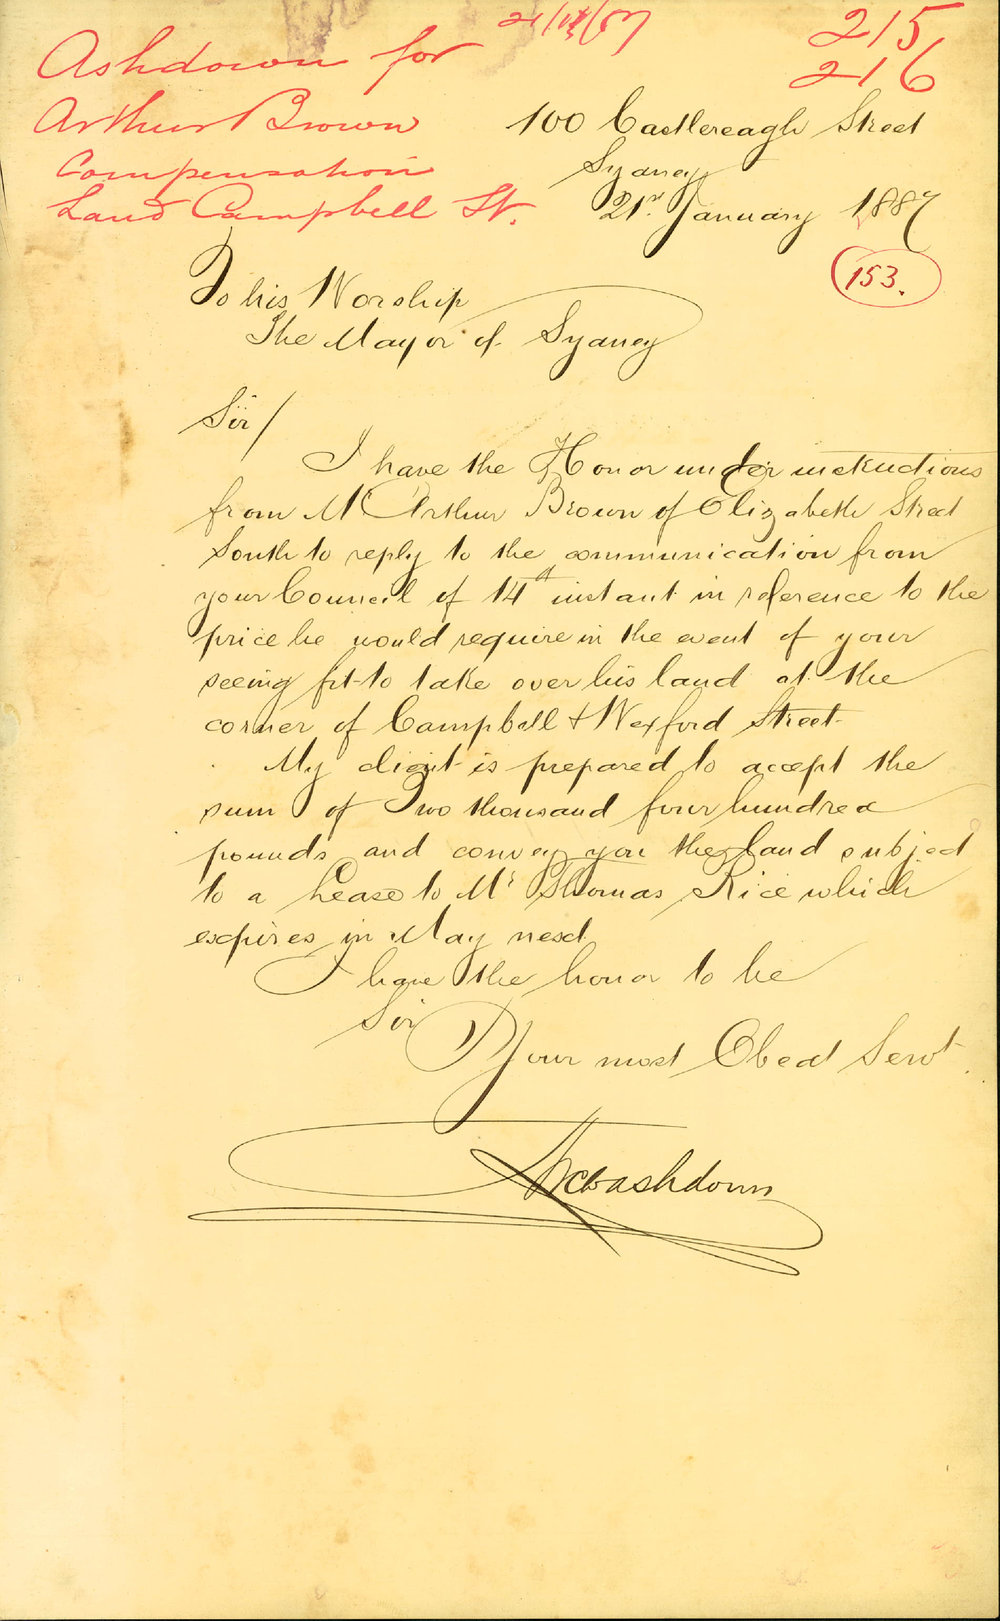 Ashdown for
Arthur Brown
Compensation
Land Campbell St.
215
216
100 Castlereagh Street
Sydney
21st January 1887
153.
To his Worship
The Mayor of Sydney
Sir/
I have the Honor under instructions
from Mr Arthur Brown of Elizabeth Street
South to reply to the communication from
your Council of 14th instant in reference to the
price he would require in the event of your
seeing fit to take over his land at the
corner of Campbell & Wexford Street
My client is prepared to accept the
sum of Two thousand four hundred
pounds and convey you the land subject
to a Lease to Mr Thomas Rice which
expires in May next
I have the honor to be
Sir
Your most Obedt Servt
Ashdown